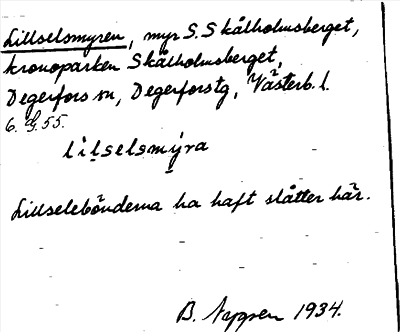 Lillselsmyren, myr S. Skålholmsberget,
kronoparken Skålholmsberget,
Degerfors sn, Degerforstg, Västerb. l.
6. G. 55.
lìlsɛlsmýra
Lillselebönderna ha haft slåtter här.
B. Nygren 1934.